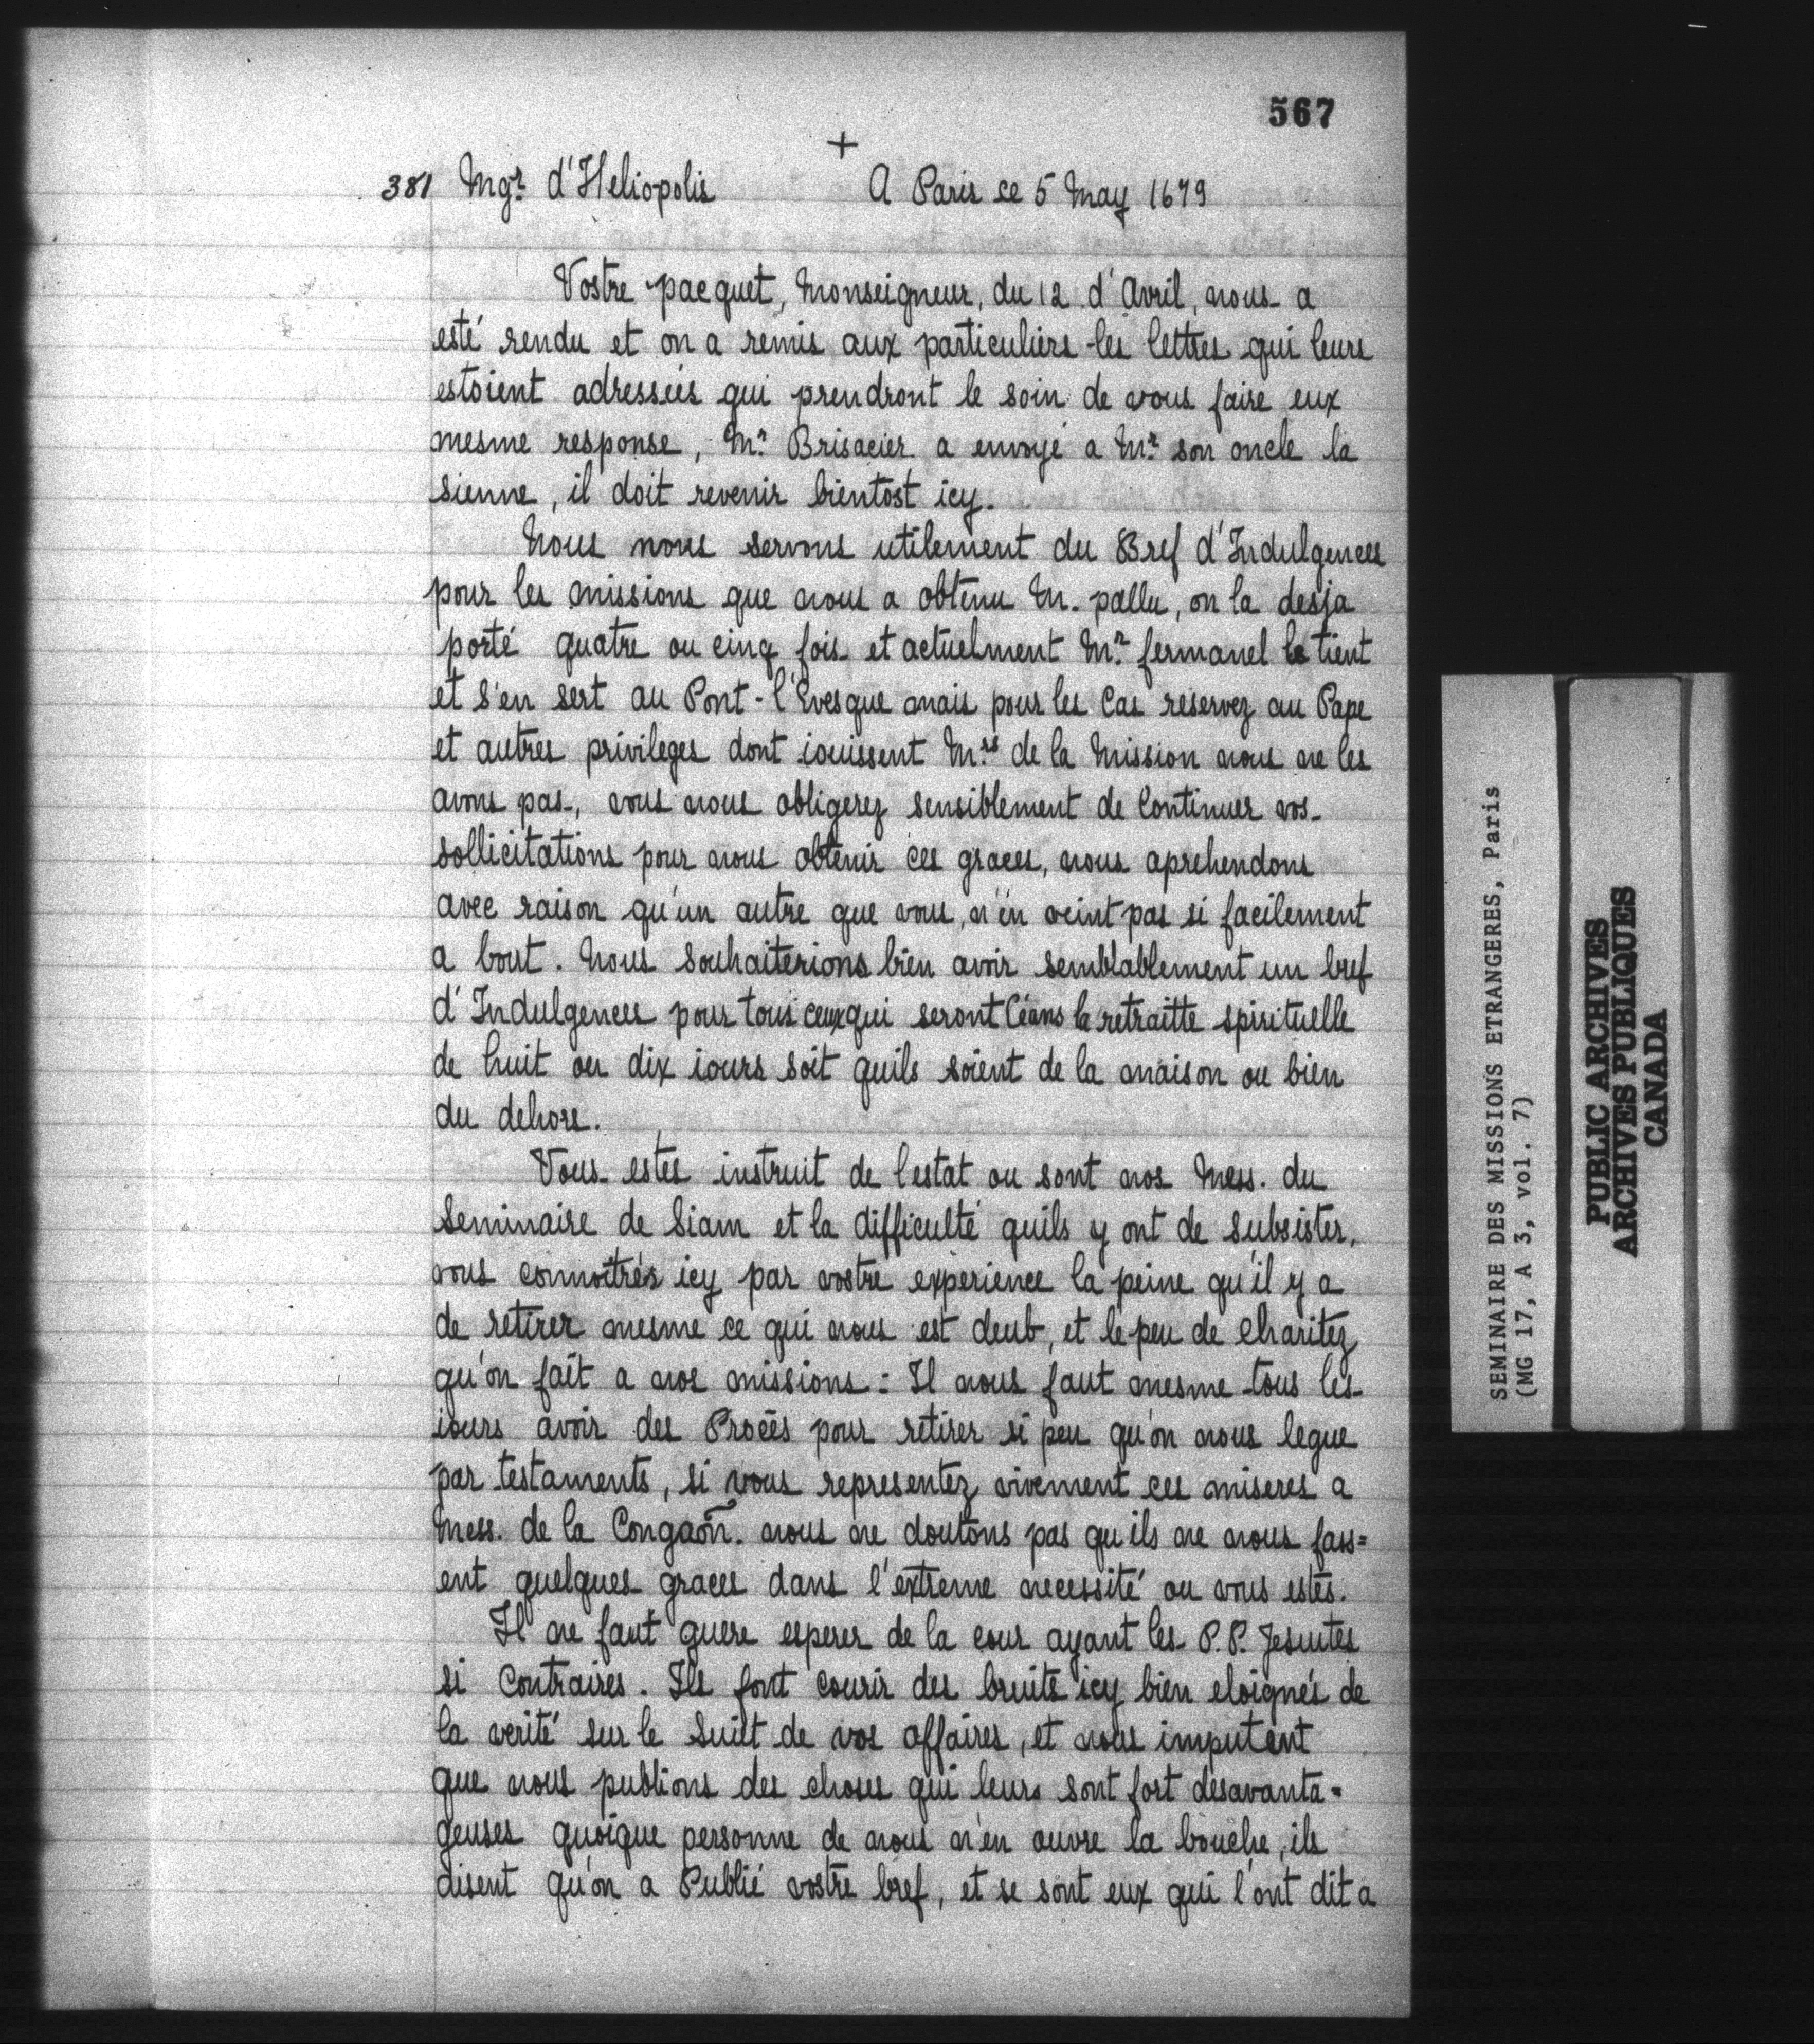 567
+
381 Mgr d'Heliopolis A Paris ce 5 May 1679
Vostre pacquet, Monseigneur, du 12 d'Avril, nous a
esté rendu et on a remis aux particuliers les lettres qui leurs
estoient adressées qui prendront le soin de vous faire eux
mesme response, Mr. Brisacier a envoyé a Mr. son oncle la
sienne, il doit revenir bientost icy.
Nous nous servons utilement du Bref d'Indulgences
pour les missions que nous a obtenu M. pallu, on la desja
porté quatre ou cinq fois et actuelment Mr. fermanel le tient
et s'en sert au Pont-l'Evesque mais pour les Cas reservez au Pape
et autres privileges dont iouissent Mrs de la Mission nous ne les
avons pas, vous nous obligerez sensiblement de Continuer vos
sollicitations pour nous obtenir ces graces, nous aprehendons
avec raison qu'un autre que vous, n'en veint pas si facilement
a bout. Nous Souhaiterions bien avoir semblablement un bref
d'Indulgences pour tous ceux qui seront Céans la retraitte spirituelle
de huit ou dix iours soit quils soient de la maison ou bien
du dehors.
Vous estes instruit de lestat ou sont nos Mess. du
Seminaire de Siam et la difficulté quils y ont de subsister,
vous connoîtrés icy par vostre experience la peine qu'il y a
de retirer mesme ce qui nous est deub, et le peu de charitez
qu'on fait a nos missions : Il nous faut mesme tous les
iours avoir des Procés pour retirer si peu qu'on nous legue
par testaments, si vous representez vivement ces miseres a
Mess. de la Congaõn. nous ne doutons pas qu'ils ne nous fass=
ent quelques graces dans l'extreme necessité ou vous estes.
Il ne faut guere esperer de la cour ayant les P.P. Jesuites
si Contraires. Ils font courir des bruits icy bien eloignés de
la verité sur le Suiet de vos affaires, et nous imputent
que nous publions des choses qui leurs sont fort desavanta=
geuses quoique personne de nous n'en ouvre la bouche, ils
disent qu'on a Publié vostre bref, et se sont eux qui l'ont dit a
SEMINAIRE DES MISSIONS ETRANGERES, Paris
(MG 17, A 3, vol. 7)
PUBLIC ARCHIVES
ARCHIVES PUBLIQUES
CANADA